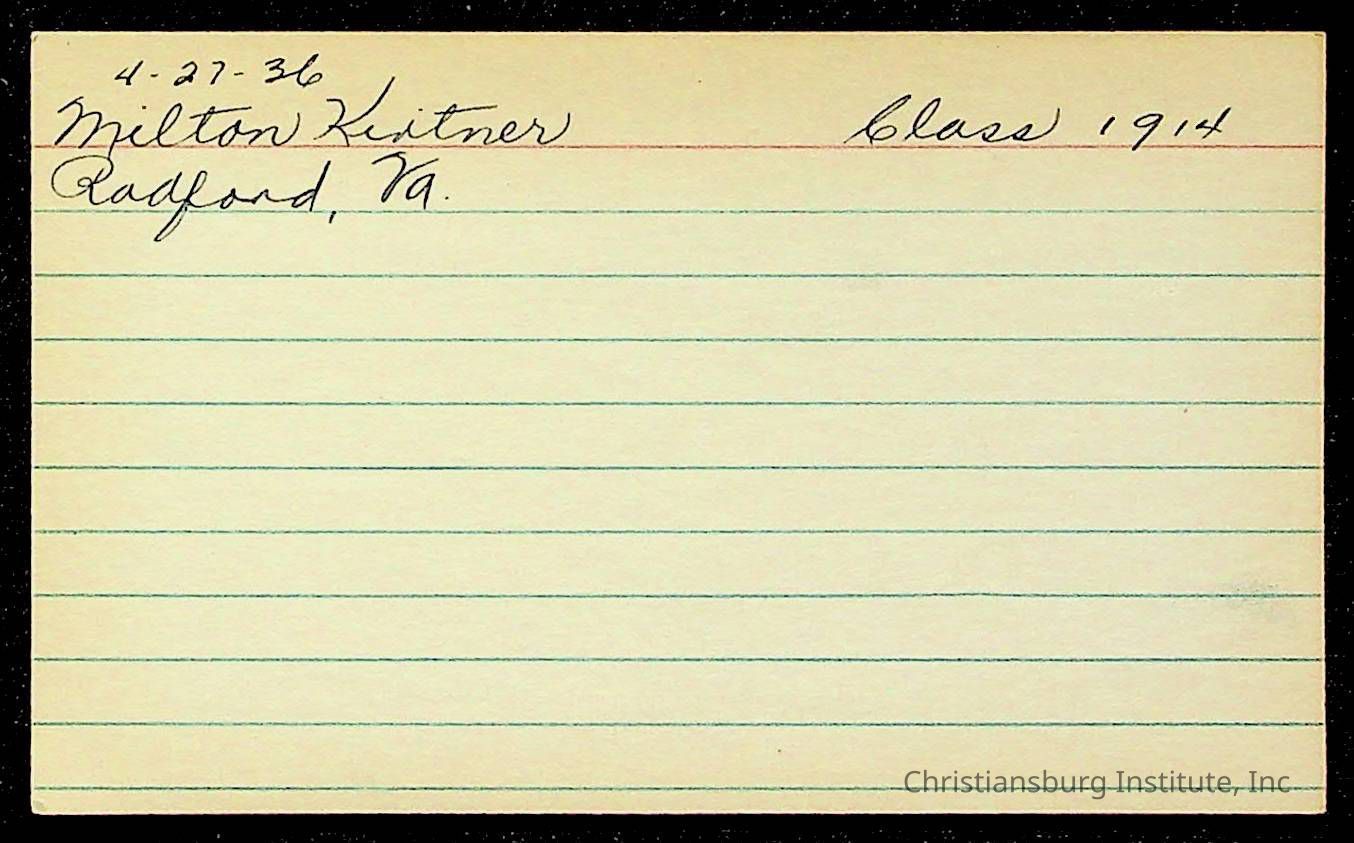 4-27-36
Milton Kirtner Class 1914
Radford, Va.
Christiansburg Institute, Inc